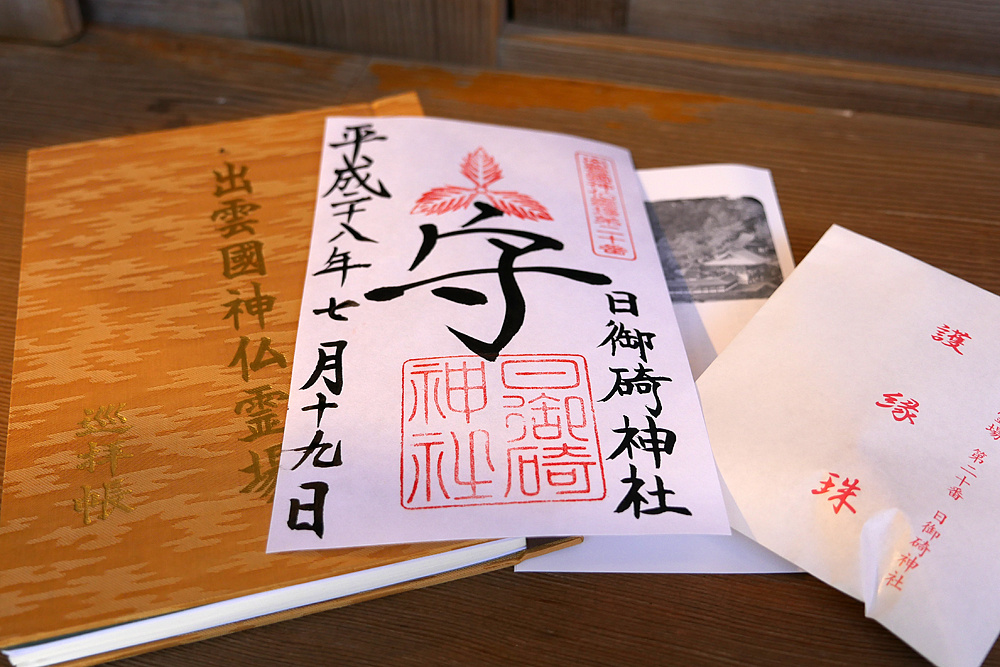 出雲國神仏霊場
巡拝帳
平成二十八年七月十九日
守
日御碕神社
第二十番
日御碕
神社
護縁珠
霊場 第二十番 日御碕神社